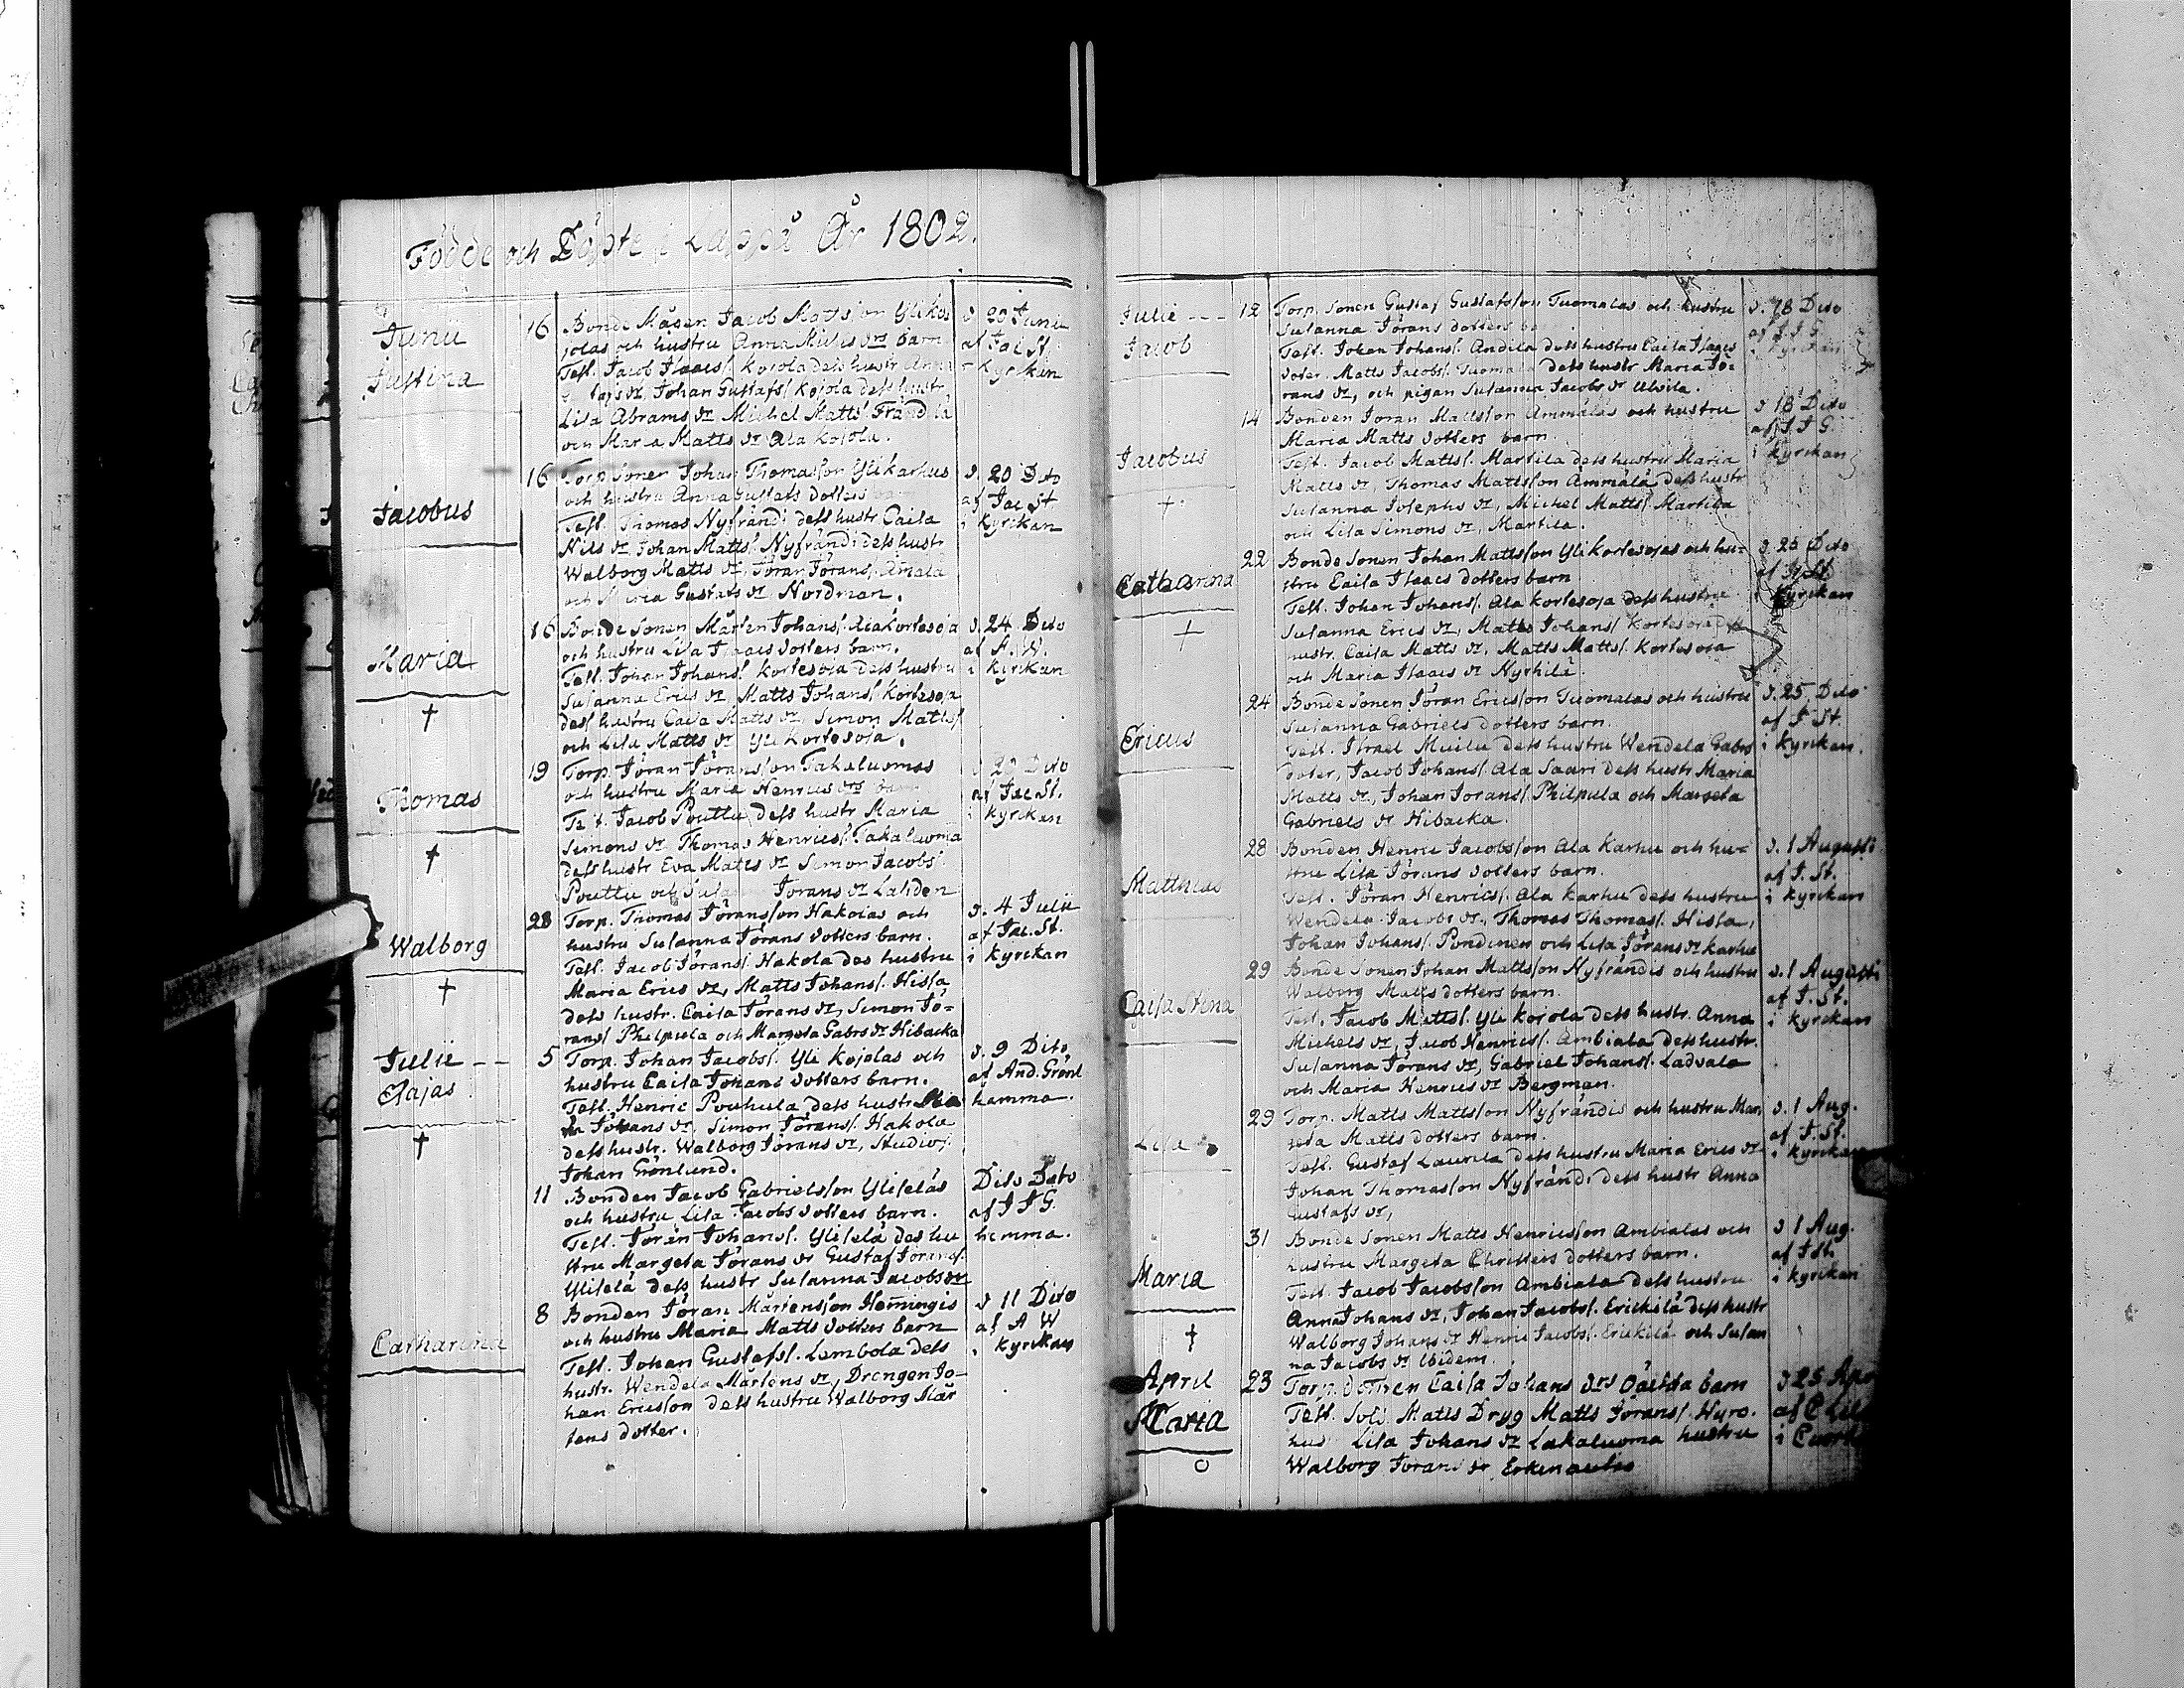 Födde och Döpte i Lappå År 1802.
Junii
Justina
16 Bonde Mågen Jacob Mattsson Ylikoi
jolas och hustru Anna Michels drs barn
Test. Jacob Isaacs/. Kojola dess hustr Anna
dr, Johan Gustafs/. Kojola dess hustr
Lisa Abrams dr Michel Matts/. Frändilä
och Maria Matts dr Ala Kojola.
d 20 Junii
af Jac St.
i Kyrikan
Jacobus
16 Torp. Sonen Johan Thomasson Ylikarhus
och hustru Anna Gustafs dotters barn
Test. Thomas Nyfrändi dess hustr Caisa
Nils dr Johan Matts/. Nyfrändi dess hustr
Walborg Matts dr, Jöran Jörans/. Ämälä
och Maria Gustafs dr Nordman.
d. 20 Dito
af Jac St.
i Kyrikan
Maria
†
16 Bonde Sonen Mårten Johans/. Alakortesoja
och hustru Lisa Isaacs dotters barn.
Test. Johan Johans/. Kortesoja dess hustru
Susanna Erics dr Matts Johans/. Kortesoja
dess hustru Caisa Matts dr Simon Matts/.
och Lisa Matts dr Yli kortesoja.
d. 24 Dito
af A. W.
i Kyrikan
Thomas
†
19 Torp. Jöran Jöransson Takaluomas
och hustru Maria Henrics drs barn
Test. Jacob Pouttu dess hustr Maria
Simons dr Thomas Henrics/. Takaluoma
dess hustr Eva Matts dr Simon Jacobs/.
Pouttu och Jörans dr Lahden
Dito
af Jac St.
i Kyrikan
Walborg
†
28 Torp. Thomas Jöransson Hakolas och
hustru Susanna Jörans dotters barn.
Test. Jacob Jörans/. Hakola des hustru
Maria Erics dr, Matts Johans/. Hissa,
dess hustr. Caisa Jörans dr, Simon Jö-
rans/. Philpula och Margeta Gabrs dr Hibacka
d. 4 Julii
af Jac. St.
i Kyrikan
Julii --
Elajas
†
5 Torp. Johan Jacobs/. Yli Kojolas och
hustru Caisa Johans dotters barn.
Test. Henric Pouhula dess hustr
Johans dr, Simon Jörans/. Hakola
dess hustr. Walborg Jörans dr, Studios/.
Johan Grönlund.
d. 9 Dito
af And. Grönl
hamma.
11 Bonden Jacob Gabrielsson Yliseläs
och hustru Lisa Jacobs dotters barn.
Test. Jöran Johans/. Yliselä des hu
stru Margeta Jörans dr Gustaf Jörans/.
Yliselä dess hustr Susanna Jacobs dr
Dito Dato
af J J G.
hemma.
Catharina
8 Bonden Jöran Mårtensson Hemingis
och hustru Maria Matts dotters barn
Test. Johan Gustafs/. Lambola dess
hustr. Wendela Mårtens dr, Drengen Jo-
han Ericsson dess hustru Walborg Mår
tens dotter.
d 11 Dito
af A W
i Kyrikan
Julii ---
Jacob
12 Torp. Sonen Gustaf Gustafsson Tuomalas och hustru
Susanna Jörans dotters
Test. Johan Johans/. Andila dess hustru Caisa Isaacs
doter. Matts Jacobs/. Tuomala dess hustr Maria Jö-
rans dr, och pigan Susanna Jacobs dr Ulvila.
d. 18 Dito
af J J G
i Kyrikan
Jacobus
†
14 Bonden Jöran Mattsson Ämmäläs och hustru
Maria Matts dotters barn
Test. Jacob Matts/. Martila dess hustru Maria
Matts dr, Thomas Mattsson Ämmälä dess hustr
Susanna Josephs dr, Michel Matts/. Martila
och Lisa Simons dr, Martila.
d 18 Dito
af J J G
i Kyrikan
Catharina
†
22 Bonde Sonen Johan Mattsson Yli kortesojas och hu-
stru Caisa Isaacs dotters barn
Test. Johan Johans/. Ala kortesoja dess hustru
Susanna Erics dr, Matts Johans/. Kortesoja
hustr. Caisa Matts dr. Matts Matts/. Kortesoja
och Maria Isaacs dr Nyrhilä.
d. 25 Dito
i Kyrikan
Ericus
24 Bonde Sonen Jöran Ericsson Tuomalas och hustru
Susanna Gabriels dotters barn.
Test. Israel Muilu dess hustru Wendela Gabrs
doter, Jacob Johans/. Ala Saari dess hustr Maria
Matts dr, Johan Jörans/. Philpula och Margeta
Gabriels dr Hibacka.
d. 25 Dito
af J St.
i Kyrikan.
Matthias
28 Bonden Henric Jacobsson Ala Karhu och hu-
stru Lisa Jörans dotters barn.
Test. Jöran Henrics/. Ala Karhu dess hustru
Wendela Jacobs dr, Thomas Thomas/. Hissa,
Johan Johans/. Pondinen och Lisa Jörans dr Karhu
d. 1 Augusti
af J. St.
i Kyrikan
Caisa Stina
29 Bonde Sonen Johan Mattsson Nyfrändis och hustru
Walborg Matts dotters barn.
Test. Jacob Matts/. Yli Kojola dess hustr. Anna
Michels dr, Jacob Henrics/. Ambiala dess hustr.
Susanna Jörans dr, Gabriel Johans/. Ladvala
och Maria Henrics dr Bergman.
d. 1 Augusti
af J. St.
i Kyrikan
Lisa
29 Torp. Matts Mattsson Nyfrändis och hustru Mar
geta Matts dotters barn.
Test. Gustaf Laurila dess hustru Maria Erics dr
Johan Thomasson Nyfrändi dess hustr Anna
Gustafs dr,
d. 1 Aug.
af J. St.
i Kyrikan
Maria
†
31 Bonde Sonen Matts Henricsson Ambialas och
hustru Margeta Christers dotters barn.
Test. Jacob Jacobsson Ambiala dess hustru
Anna Johans dr, Johan Jacobs/. Erickilä dess hustr
Walborg Johans dr Henric Jacobs/. Erickilä och Susan
na Jacobs dr ibidem.
d 1 Aug.
af J St.
i Kyrikan
April
Maria
O
23 Torp. dottren Caisa Johans drs Oäckta barn
Test. Sold. Matts Dryg Matts Jörans/. Hyro.
hus Lisa Johans dr Lakaluoma hustru
Walborg Jörans dr
d 25 Apr
af
i